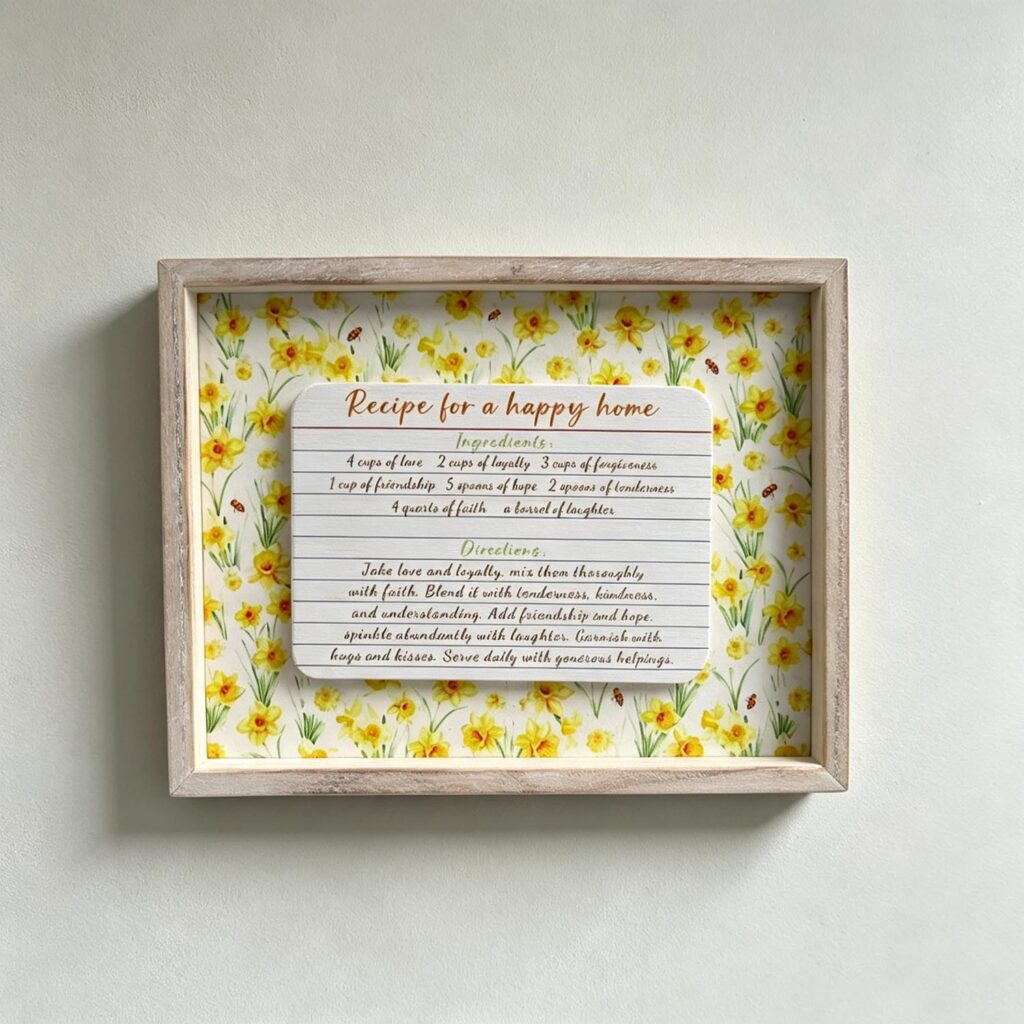 Recipe for a happy home
Ingredients:
4 cups of love 2 cups of loyalty 3 cups of forgiveness
1 cup of friendship 5 spoons of hope 2 spoons of tenderness
4 quarts of faith a barrel of laughter
Directions:
Take love and loyalty, mix them thoroughly
with faith. Blend it with tenderness, kindness,
and understanding. Add friendship and hope.
spinkle abundantly with laughter. Garnish with
hugs and kisses. Serve daily with generous helpings.